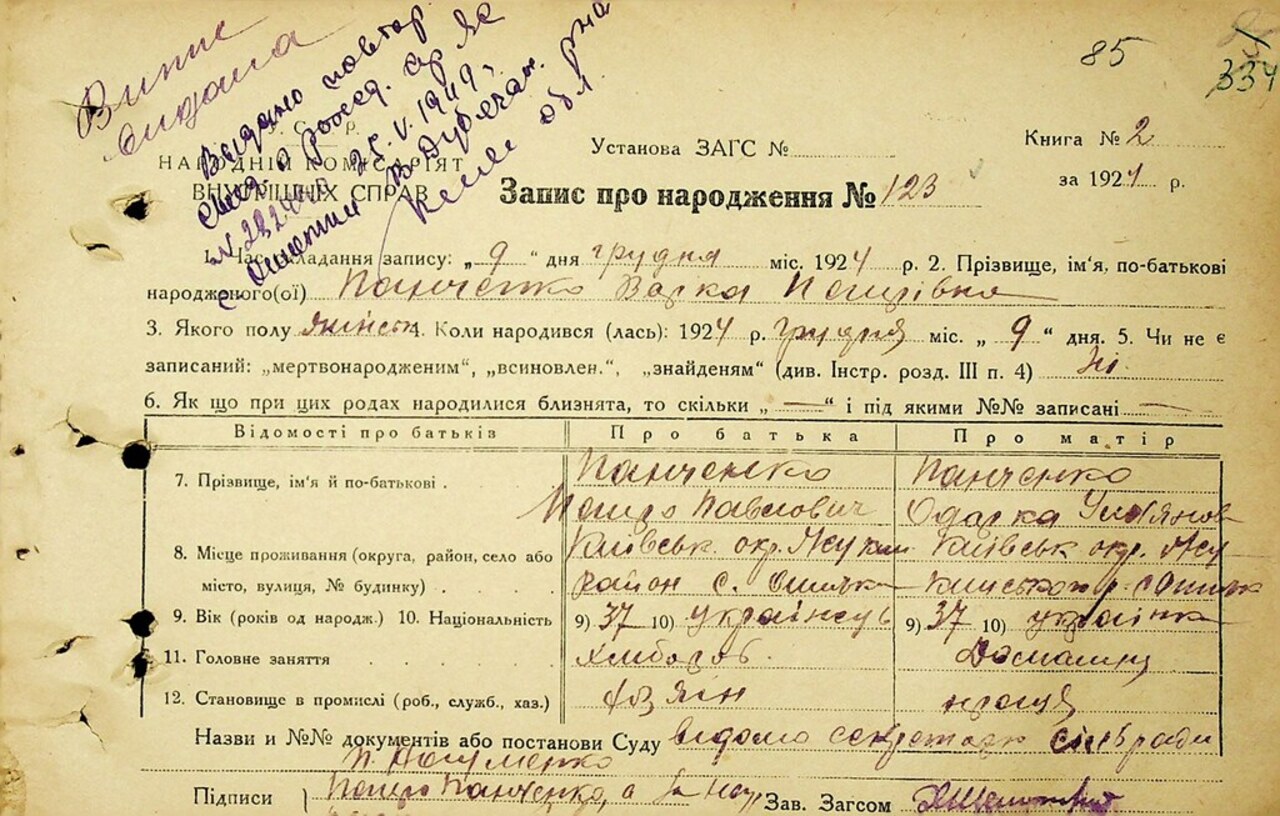 Випис
видана
Видано повтор
свід. о рожд.
№ 25.V.1949 г.
с. Ошитки В-Дубечан. р-на
Киев обл.
85
334
У. С. Р. Р.
НАРОДНІЙ КОМІСАРІЯТ
ВНУТРІШНІХ СПРАВ
Установа ЗАГС №
Книга № 2
за 1924 р.
Запис про народження № 123
1. Час складання запису: „ 9 “ дня грудня міс. 1924 р. 2. Прізвище, ім'я, по-батькові
народженого(ої) Панченко Варка Петрівна
3. Якого полу жіноч. 4. Коли народився (лась): 1924 р. грудня міс. „ 9 “ дня. 5. Чи не є
записаний: „мертвонародженим“, „всиновлен.“, „знайденям“ (див. Інстр. розд. III п. 4) Ні.
6. Як що при цих родах народилися близнята, то скільки „ — “ і під якими №№ записані —
Відомості про батьків Про батька Про матір
7. Прізвище, ім'я й по-батькові . Панченко Петро Павлович Панченко Одарка
8. Місце проживання (округа, район, село або
місто, вулиця, № будинку) . Київськ. окр. район с. Київськ окр.
9. Вік (років од народж.) 10. Національність 9) 37 10) українець 9) 37 10) українка
11. Головне заняття хлібороб. Домашня
12. Становище в промислі (роб., служб., хаз.) хозяін праця
Назви и №№ документів або постанови Суду відомо секретарю сільради
П.
Підписи Петро Панченко, а за Зав. Загсом